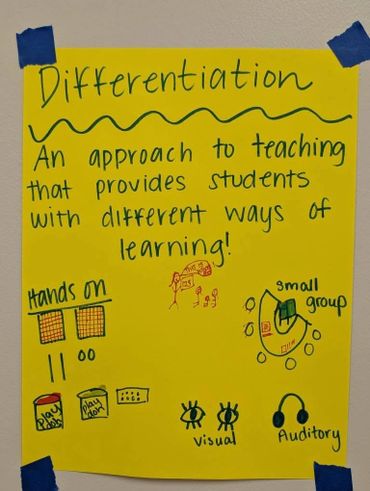 Differentiation
An approach to teaching
that provides students
with different ways of
learning!
Hands on
small
group
play
doh
play
doh
visual
Auditory